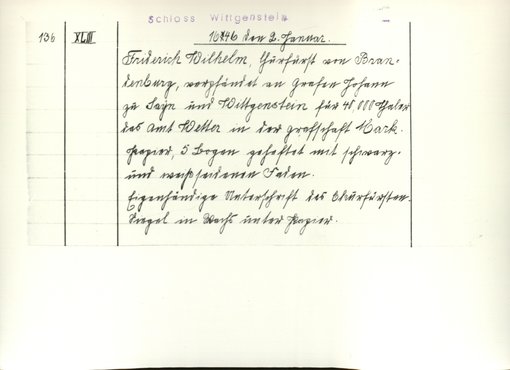 Schloss Wittgenstein
136 XLIII 1646 den 2. Januar.
Friderich Wilhelm, Churfürst von Bran-
denburg, verpfändet an Grafen Johann
zu Sayn und Wittgenstein für 40,000 Thaler
das Amt Wetter in der Grafschaft Mark.
Papier, 5 Bogen geheftet mit schwarz-
und weißseidenen Faden.
Eigenhändige Unterschrift des Churfürsten.
Siegel in Wachs unter Papier.